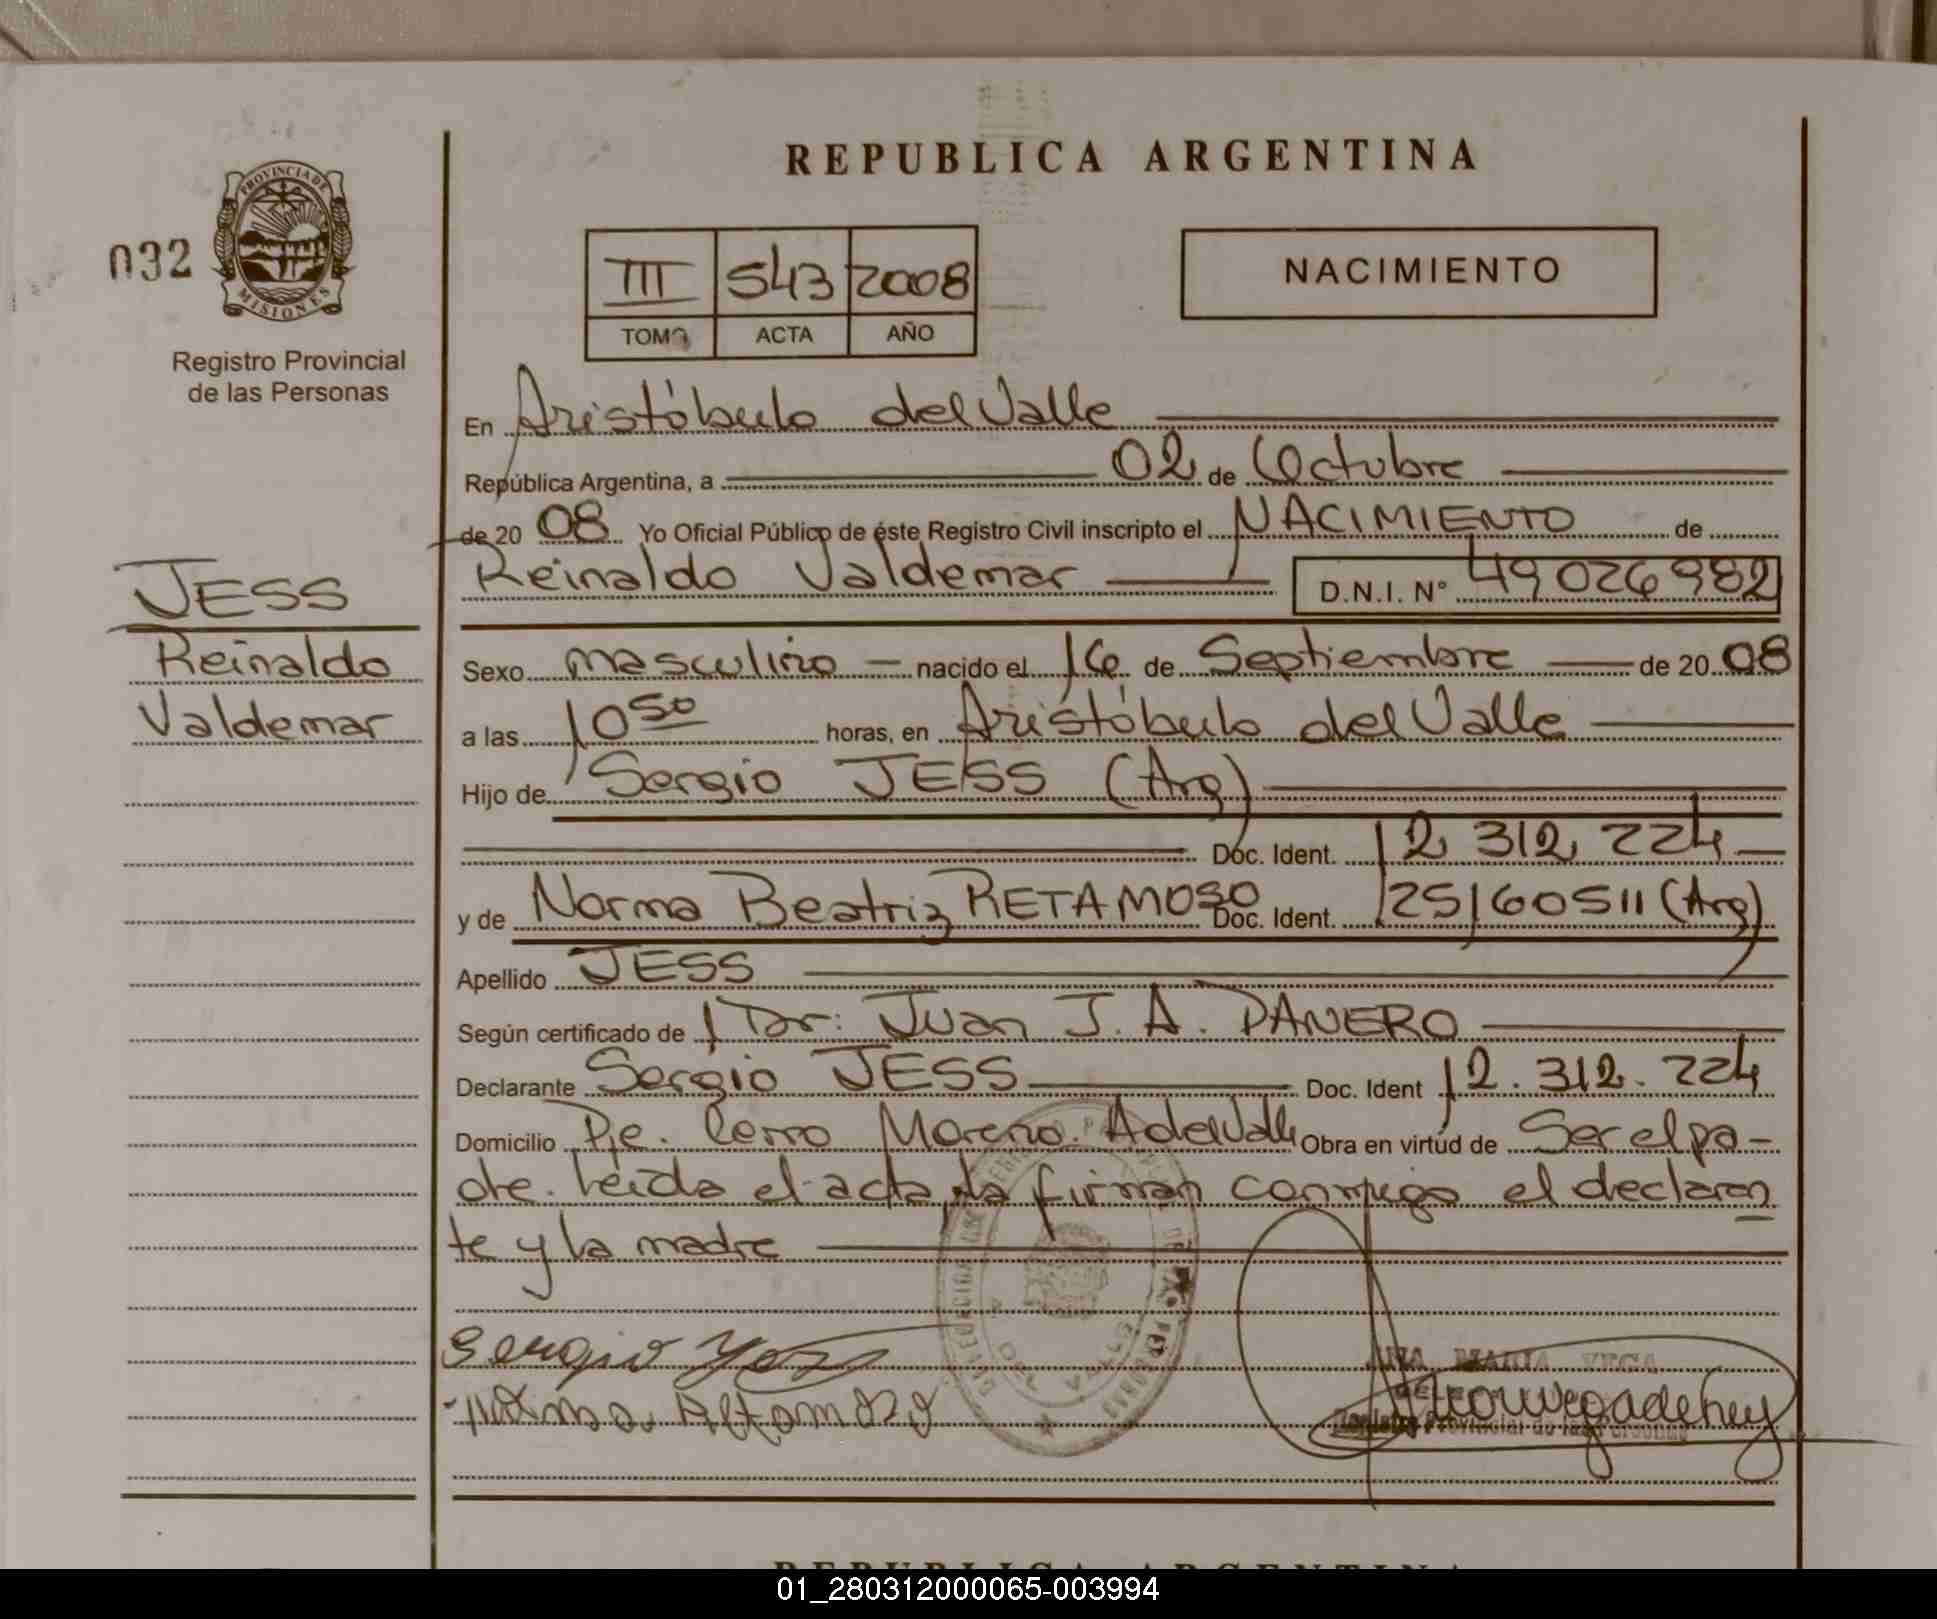 REPUBLICA ARGENTINA
032
PROVINCIA DE
MISIONES
Registro Provincial
de las Personas
III 543 2008
TOMO ACTA AÑO
NACIMIENTO
En Aristóbulo del Valle
República Argentina, a 02 de Octubre
de 20 08 Yo Oficial Público de éste Registro Civil inscripto el NACIMIENTO de
Reinaldo Valdemar D.N.I. Nº 49026982
JESS
Reinaldo
Valdemar
Sexo masculino nacido el 16 de Septiembre de 20 08
a las 10 50 horas, en Aristóbulo del Valle
Hijo de Sergio JESS (Arg)
Doc. Ident. 12.312.224
y de Norma Beatriz RETAMOSO Doc. Ident. 25160511 (Arg)
Apellido JESS
Según certificado de Dr: Juan J. A. DANERO
Declarante Sergio JESS Doc. Ident 12.312.224
Domicilio Pje. Cerro Moreno. A del Valle Obra en virtud de Ser el pa-
dre. Leída el acta, la firman conmigo el declaran
te y la madre
Sergio
ANA MARIA VEGA
Registro Provincial de las Personas
REPUBLICA ARGENTINA
01_280312000065-003994